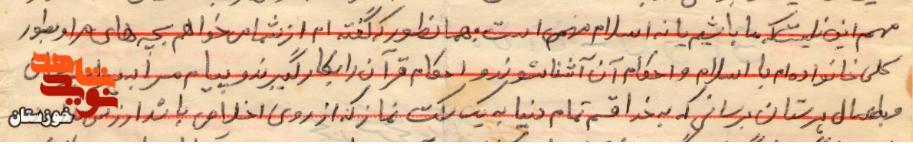 مهم این نیست که ما باشیم یا نه اسلام مهم است همانطور که گفته ام از شما می خواهم بچه های مرا و بطور
کلی خانواده ام با اسلام و احکام آن آشنا شوند و احکام قرآن را بکار گیرند و پیام مرا به
و بهمسال برستان برسانی که به خدا قسم تمام دنیا به یک رکعت نماز که از روی اخلاص باشد ارزش
شاهد
نوید
خوزستان